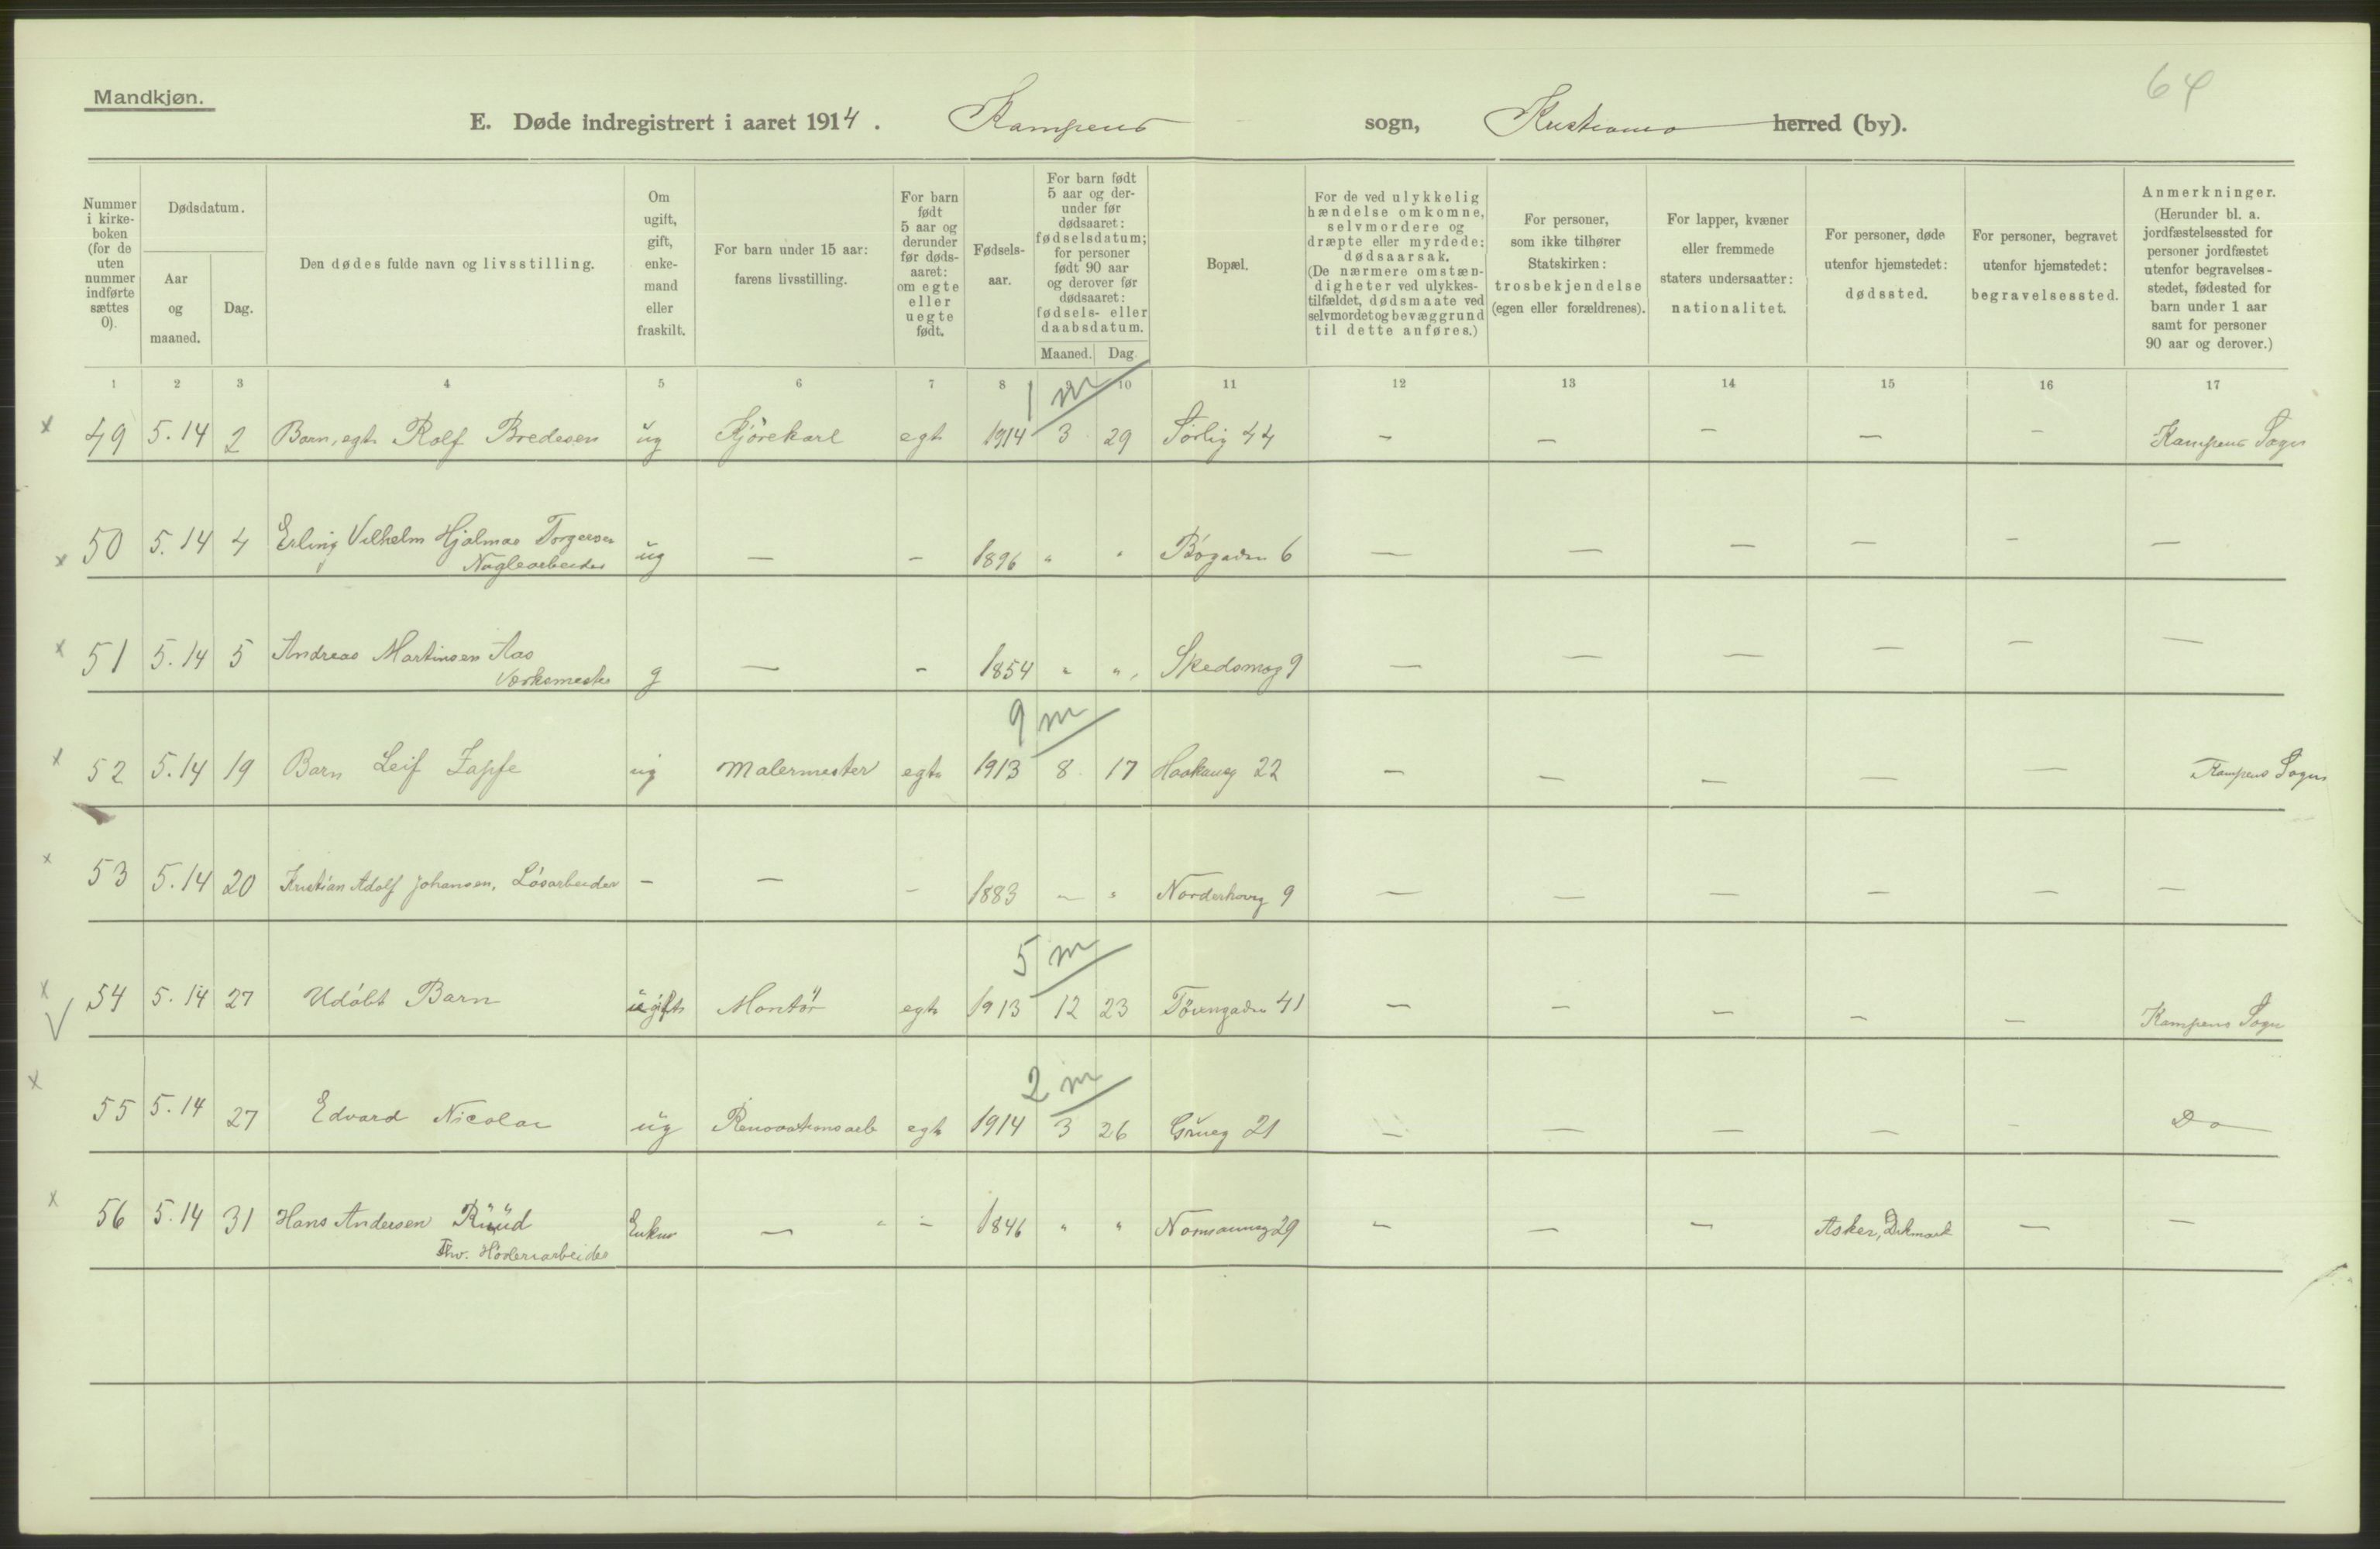 64
Mandkjøn.
E. Døde indregistrert i aaret 1914. Kampens sogn, Kristiania herred (by).
Nummer i kirke-boken (for de uten nummer indførte sættes 0).
Dødsdatum.
Aar og maaned.
Dag.
Den dødes fulde navn og livsstilling.
Om ugift, gift, enke-mand eller fraskilt.
For barn under 15 aar: farens livsstilling.
For barn født 5 aar og derunder før døds-aaret: om egte eller uegte født.
Fødsels-aar.
For barn født 5 aar og der-under før dødsaaret: fødselsdatum; for personer født 90 aar og derover før dødsaaret: fødsels- eller daabsdatum.
Maaned. Dag.
Bopæl.
For de ved ulykkelig hændelse omkomne, selvmordere og dræpte eller myrdede: dødsaarsak. (De nærmere omstæn-digheter ved ulykkes-tilfældet, dødsmaate ved selvmordet og bevæggrund til dette anføres.)
For personer, som ikke tilhører Statskirken: trosbekjendelse (egen eller forældrenes).
For lapper, kvæner eller fremmede staters undersaatter: nationalitet.
For personer, døde utenfor hjemstedet: dødssted.
For personer, begravet utenfor hjemstedet: begravelsessted.
Anmerkninger. (Herunder bl. a. jordfæstelsessted for personer jordfæstet utenfor begravelses-stedet, fødested for barn under 1 aar samt for personer 90 aar og derover.)
1 2 3 4 5 6 7 8 9 10 11 12 13 14 15 16 17
1 m
x 49 5.14 2 Barn, egt. Rolf Bredesen ug Kjørekarl egt 1914 3 29 Sørlig 44 — — — — — Kampens Sogn
x 50 5.14 4 Erling Vilhelm Hjalmar Torgersen ug — — 1896 " " Bøgaden 6 — — — — — —
Naglearbeider
x 51 5.14 5 Andreas Martinsen Aas g — — 1854 " " Skedsmog 9 — — — — — —
Værksmester
9 m
x 52 5.14 19 Barn Leif Zapfe ug Malermester egte 1913 8 17 Haakaveg 22 — — — — — Kampens Sogn
x 53 5.14 20 Kristian Adolf Johansen, Løsarbeider — — — 1883 — " Norderhovg 9 — — — — — —
5 m
x V 54 5.14 27 Udøbt Barn ugift Montør egte 1913 12 23 41 — — — — — Kampens Sogn
2 m
x 55 5.14 27 Edvard Nicolai ug Renovationsarb egte 1914 3 26 21 — — — — — Do
x 56 5.14 31 Hans Andersen Ruud Enkem — " — 1846 " " Normanng 29 — — — Asker, — —